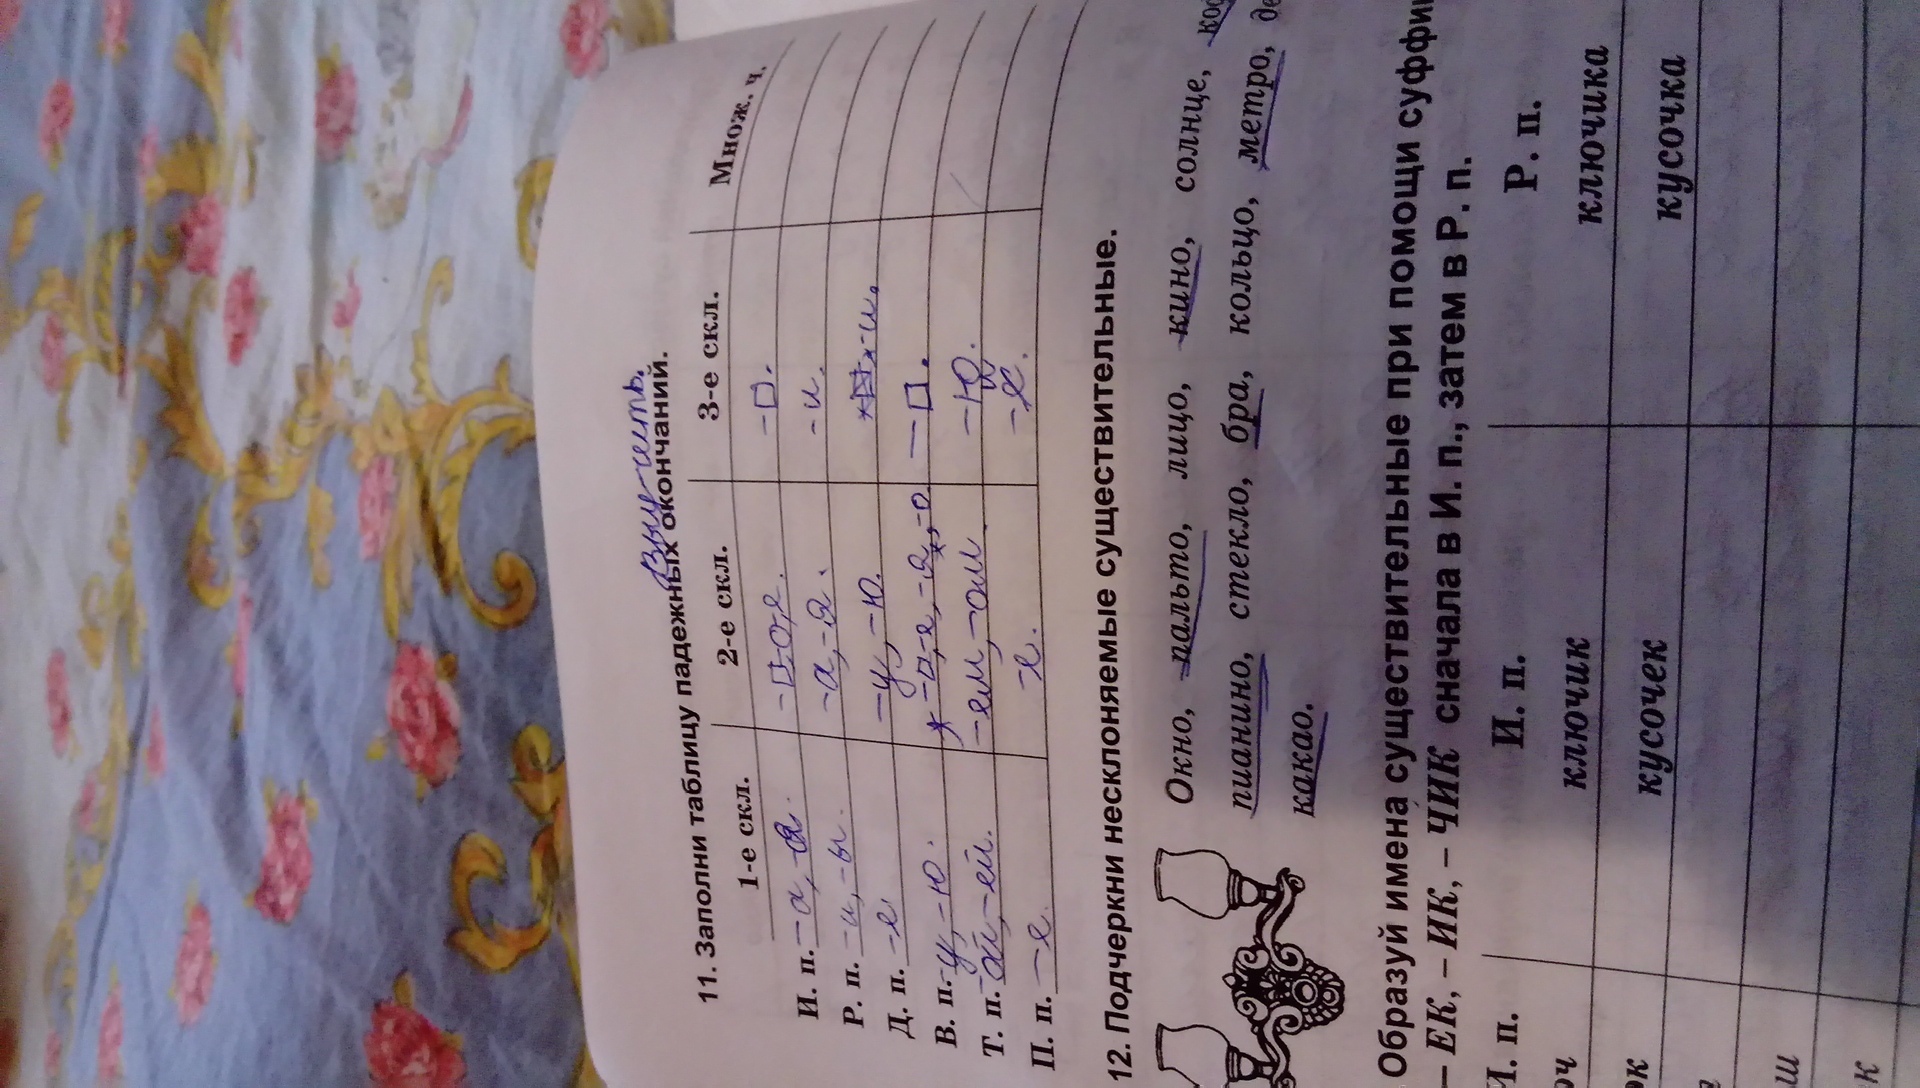 выучить.
11. Заполни таблицу падежных окончаний.
1-е скл. 2-е скл. 3-е скл. Множ. ч.
И. п. -а, -я. -□-о,е. -□.
Р. п. -и, -ы. -а, -я. -и.
Д. п. -е. -у, -ю. -и.
В. п. -у, -ю. * -а, -е, -я, -о. -□.
Т. п. -ой, -ей. -ем, -ом. -ю.
П. п. -е. -е. -и.
12. Подчеркни несклоняемые существительные.
Окно, пальто, лицо, кино, солнце,
пианино, стекло, бра, кольцо, метро,
какао.
Образуй имена существительные при помощи
– ЕК, – ИК, – ЧИК сначала в И. п., затем в Р. п.
И. п. И. п. Р. п.
ключик ключика
кусочек кусочка